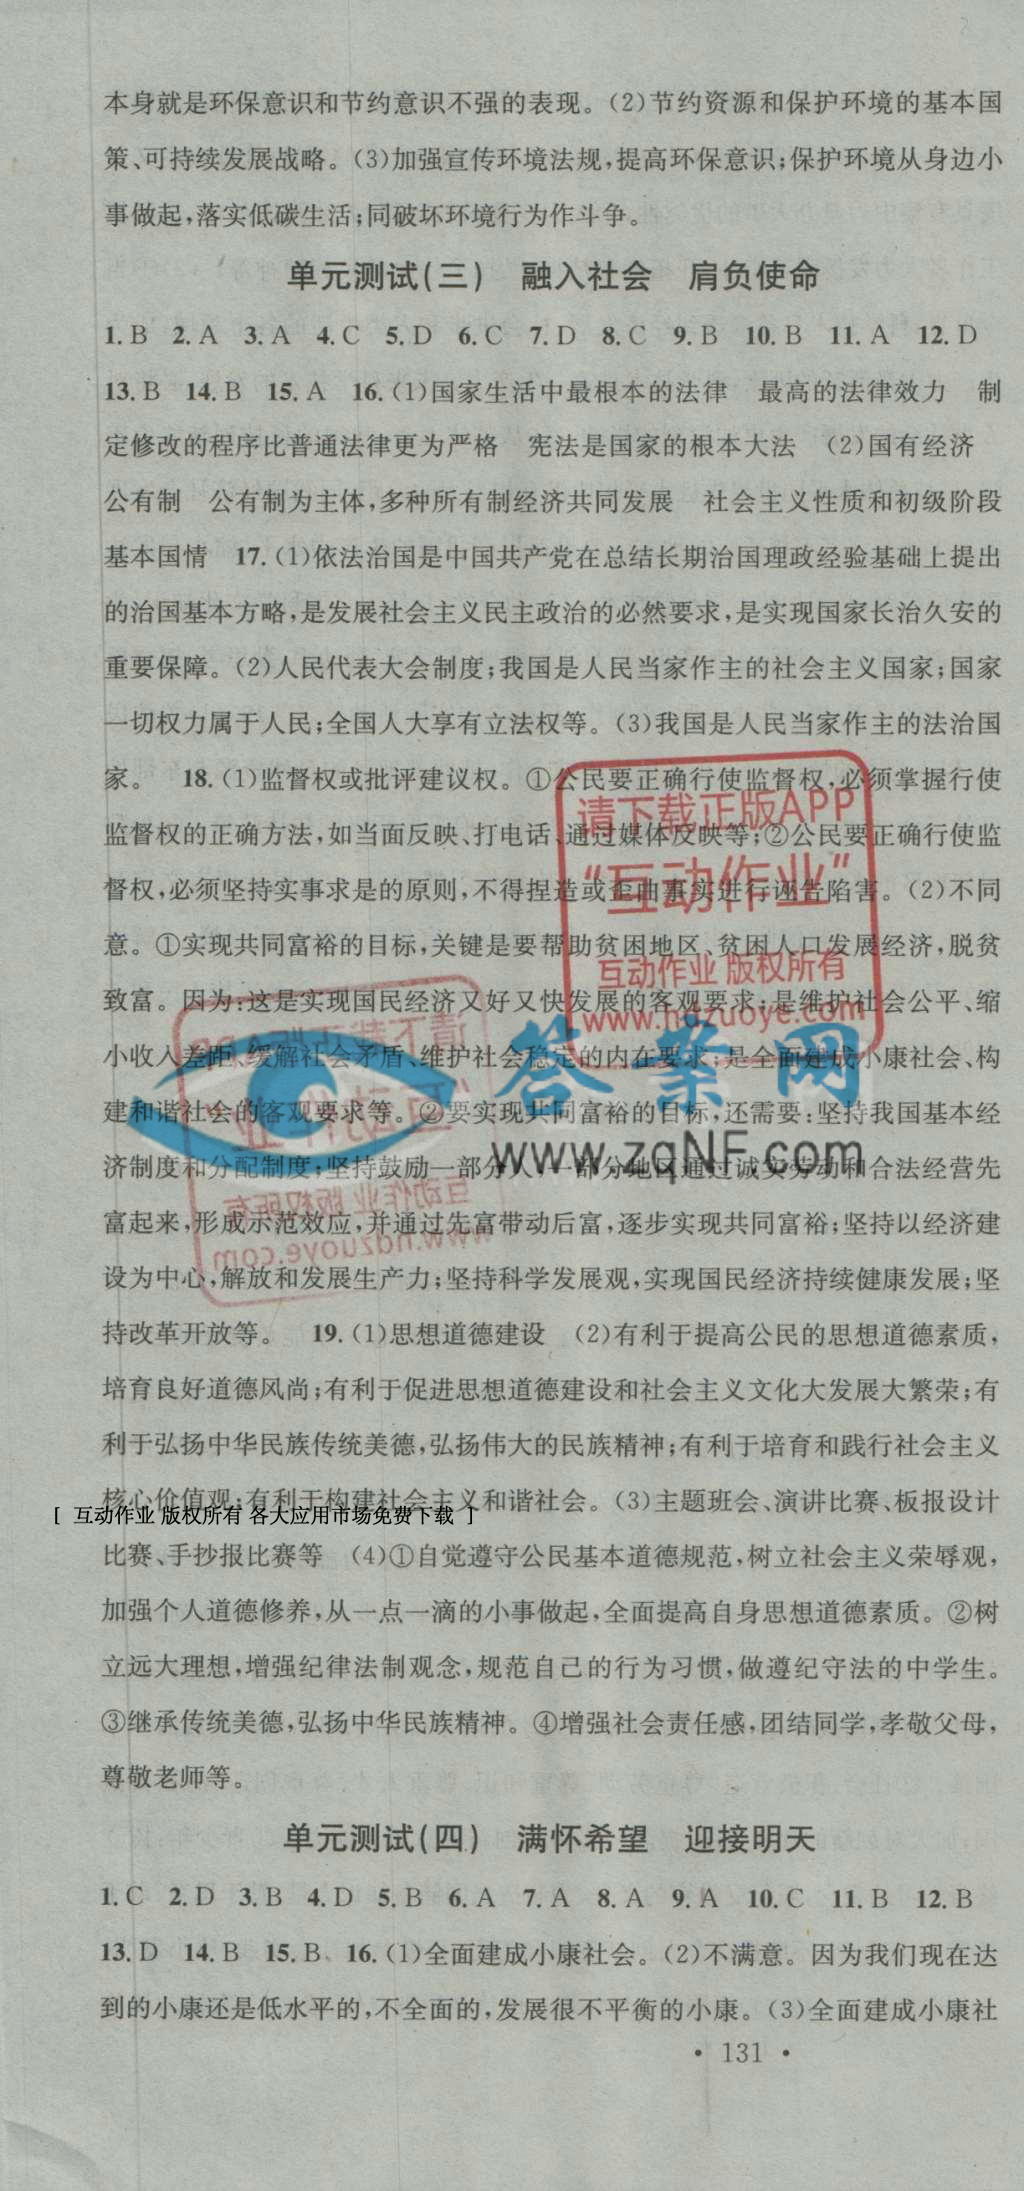 本身就是环保意识和节约意识不强的表现。(2)节约资源和保护环境的基本国
策、可持续发展战略。(3)加强宣传环境法规,提高环保意识;保护环境从身边小
事做起,落实低碳生活;同破坏环境行为作斗争。
单元测试(三) 融入社会 肩负使命
1. B 2. A 3. A 4. C 5. D 6. C 7. D 8. C 9. B 10. B 11. A 12. D
13. B 14. B 15. A 16. (1)国家生活中最根本的法律 最高的法律效力 制
定修改的程序比普通法律更为严格 宪法是国家的根本大法 (2)国有经济
公有制 公有制为主体,多种所有制经济共同发展 社会主义性质和初级阶段
基本国情 17. (1)依法治国是中国共产党在总结长期治国理政经验基础上提出
的治国基本方略,是发展社会主义民主政治的必然要求,是实现国家长治久安的
重要保障。(2)人民代表大会制度;我国是人民当家作主的社会主义国家;国家
一切权力属于人民;全国人大享有立法权等。(3)我国是人民当家作主的法治国
家。 18. (1)监督权或批评建议权。①公民要正确行使监督权,必须掌握行使
监督权的正确方法,如当面反映、打电话、通过媒体反映等;②公民要正确行使监
督权,必须坚持实事求是的原则,不得捏造或歪曲事实进行诬告陷害。(2)不同
意。①实现共同富裕的目标,关键是要帮助贫困地区、贫困人口发展经济,脱贫
致富。因为:这是实现国民经济又好又快发展的客观要求;是维护社会公平、缩
小收入差距、缓解社会矛盾、维护社会稳定的内在要求;是全面建成小康社会、构
建和谐社会的客观要求等。②要实现共同富裕的目标,还需要:坚持我国基本经
济制度和分配制度;坚持鼓励一部分人、一部分地区通过诚实劳动和合法经营先
富起来,形成示范效应,并通过先富带动后富,逐步实现共同富裕;坚持以经济建
设为中心,解放和发展生产力;坚持科学发展观,实现国民经济持续健康发展;坚
持改革开放等。 19. (1)思想道德建设 (2)有利于提高公民的思想道德素质,
培育良好道德风尚;有利于促进思想道德建设和社会主义文化大发展大繁荣;有
利于弘扬中华民族传统美德,弘扬伟大的民族精神;有利于培育和践行社会主义
核心价值观;有利于构建社会主义和谐社会。(3)主题班会、演讲比赛、板报设计
比赛、手抄报比赛等 (4)①自觉遵守公民基本道德规范,树立社会主义荣辱观,
加强个人道德修养,从一点一滴的小事做起,全面提高自身思想道德素质。②树
立远大理想,增强纪律法制观念,规范自己的行为习惯,做遵纪守法的中学生。
③继承传统美德,弘扬中华民族精神。④增强社会责任感,团结同学,孝敬父母,
尊敬老师等。
单元测试(四) 满怀希望 迎接明天
1. C 2. D 3. B 4. D 5. B 6. A 7. A 8. A 9. A 10. C 11. B 12. B
13. D 14. B 15. B 16. (1)全面建成小康社会。(2)不满意。因为我们现在达
到的小康还是低水平的,不全面的,发展很不平衡的小康。(3)全面建成小康社
• 131 •
请下载正版APP
“互动作业”
互动作业 版权所有
www.hdzuoye.com
答案网
www.zqNF.com
请下载正版APP
“互动作业”
互动作业 版权所有
www.hdzuoye.com
[ 互动作业 版权所有 各大应用市场免费下载 ]